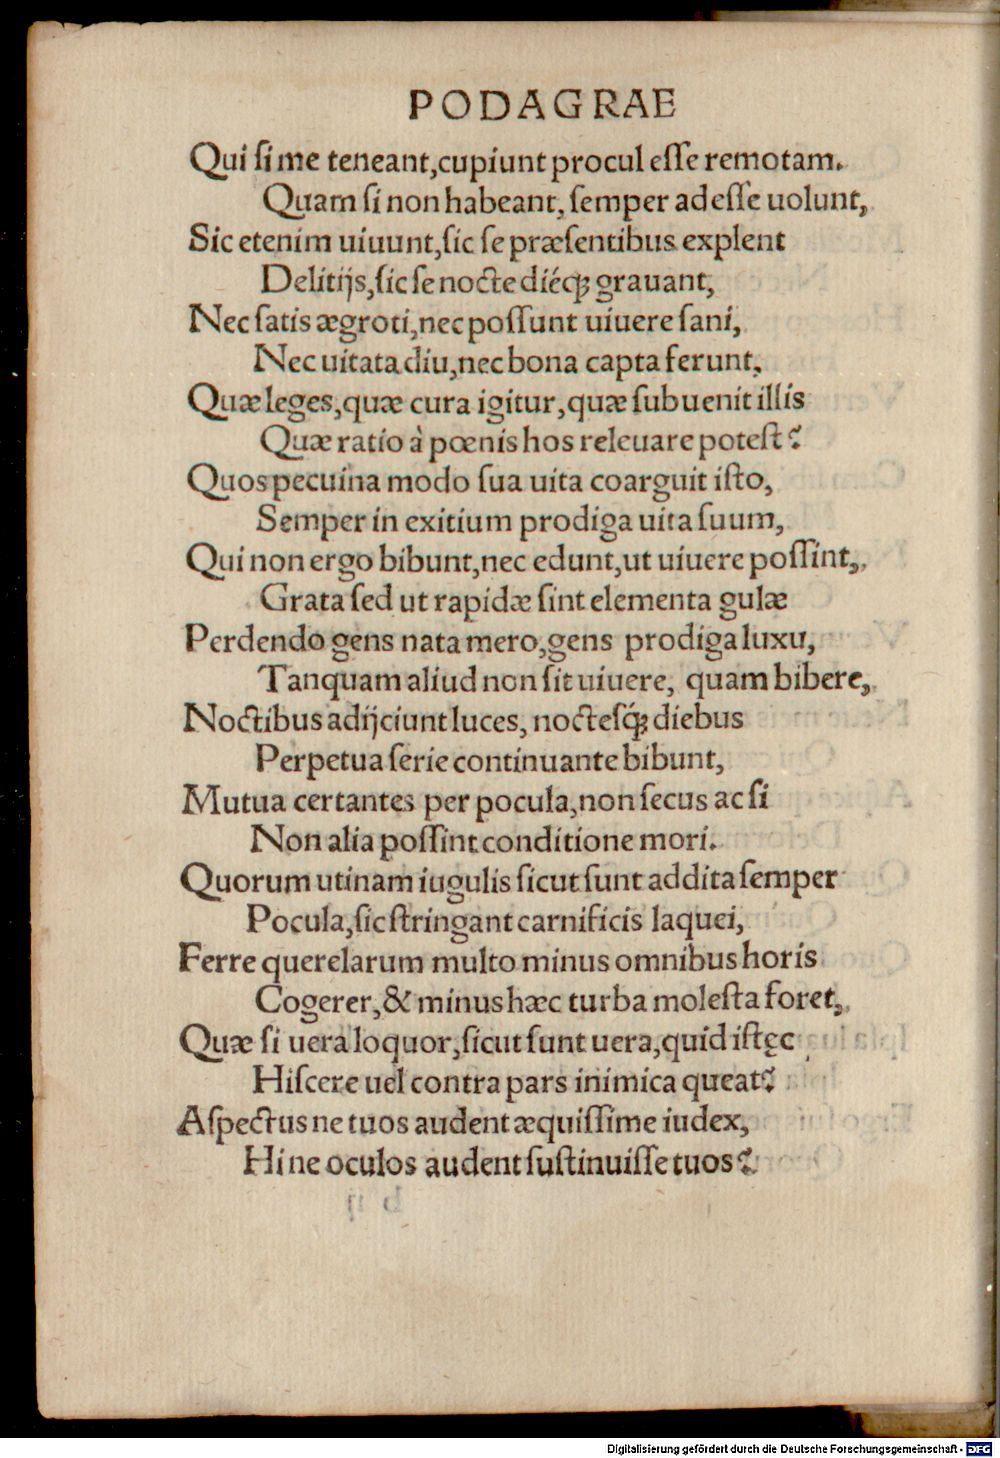 PODAGRAE
Qui si me teneant, cupiunt procul esse remotam.
Quam si non habeant, semper adesse uolunt,
Sic etenim uiuunt, sic se præsentibus explent
Delitijs, sic se nocte diéq; grauant,
Nec satis ægroti, nec possunt uiuere sani,
Nec uitata diu, nec bona capta ferunt,
Quæ leges, quæ cura igitur, quæ subuenit illis
Quæ ratio à pœnis hos releuare potest?
Quos pecuina modo sua uita coarguit isto,
Semper in exitium prodiga uita suum,
Qui non ergo bibunt, nec edunt, ut uiuere possint,
Grata sed ut rapidæ sint elementa gulæ
Perdendo gens nata mero, gens prodiga luxu,
Tanquam aliud non sit uiuere, quam bibere,
Noctibus adijciunt luces, noctesq́; diebus
Perpetua serie continuante bibunt,
Mutua certantes per pocula, non secus ac si
Non alia possint conditione mori.
Quorum utinam iugulis sicut sunt addita semper
Pocula, sic stringant carnificis laquei,
Ferre querelarum multo minus omnibus horis
Cogerer, & minus hæc turba molesta foret,
Quæ si uera loquor, sicut sunt uera, quid istęc
Hiscere uel contra pars inimica queat?
Aspectus ne tuos audent æquissime iudex,
Hi ne oculos audent sustinuisse tuos?
Digitalisierung gefördert durch die Deutsche Forschungsgemeinschaft - DFG